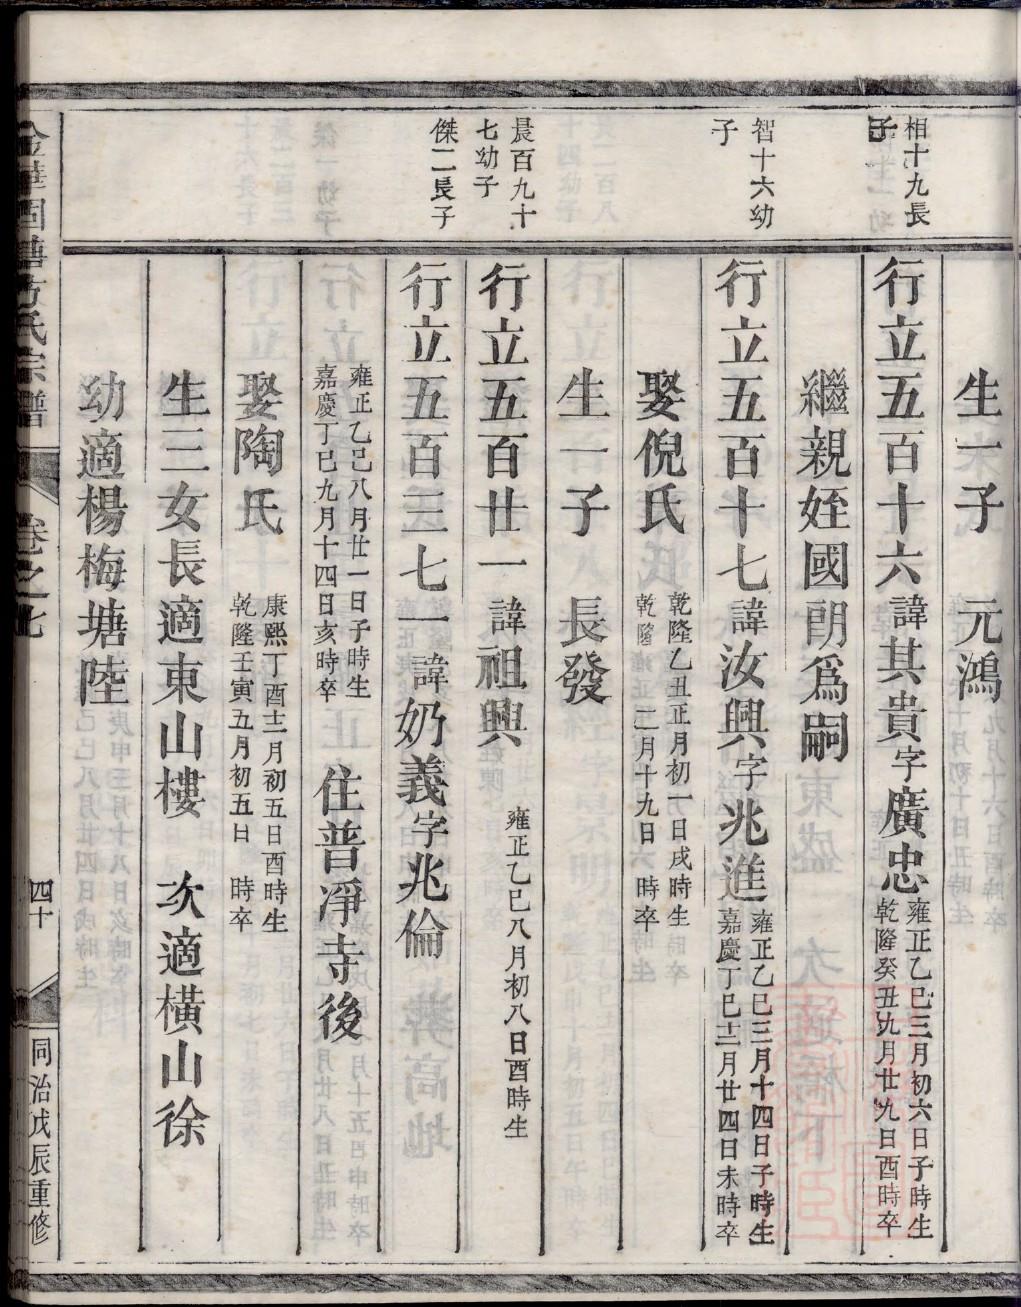 生一子　元鴻
相十九長子
行立五百十六諱其貴字廣忠
雍正乙巳三月初六日子時生
乾隆癸丑九月廿九日酉時卒
繼親姪國朗爲嗣
智十六幼子
行立五百十七諱汝興字兆進
雍正乙巳三月十四日子時生
嘉慶丁巳十二月廿四日未時卒
娶倪氏
乾隆乙丑正月初一日戌時生
乾隆　二月十九日　時卒
生一子　長發
晨百九十七幼子
行立五百廿一諱祖興
雍正乙巳八月初八日酉時生
傑二長子
行立五百三七一諱奶義字兆倫
雍正乙巳八月廿一日子時生
嘉慶丁巳九月十四日亥時卒
住普淨寺後
娶陶氏
康熙丁酉十二月初五日酉時生
乾隆壬寅五月初五日　時卒
生三女長適東山樓　次適橫山徐
幼適楊梅塘陸
卷之七
四十
同治戊辰重修